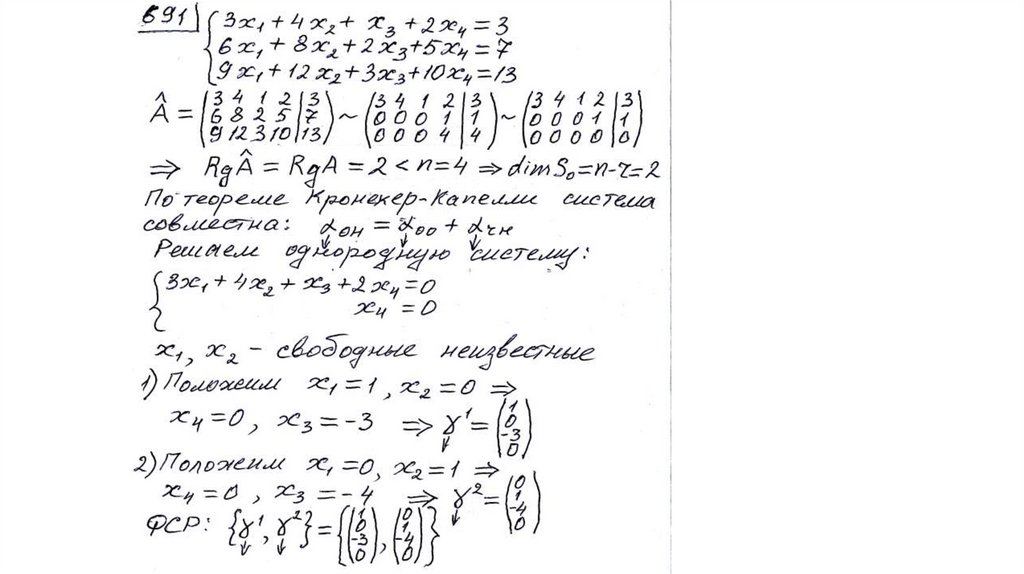 691) { 3x₁ + 4x₂ + x₃ + 2x₄ = 3
6x₁ + 8x₂ + 2x₃ + 5x₄ = 7
9x₁ + 12x₂ + 3x₃ + 10x₄ = 13
Â = (3 4 1 2 | 3; 6 8 2 5 | 7; 9 12 3 10 | 13) ~ (3 4 1 2 | 3; 0 0 0 1 | 1; 0 0 0 4 | 4) ~ (3 4 1 2 | 3; 0 0 0 1 | 1; 0 0 0 0 | 0)
⇒ RgÂ = RgA = 2 < n = 4 ⇒ dim S₀ = n-r = 2
По теореме Кронекер-Капелли система
совместна: αон = αоо + αчн
Решаем однородную систему:
{ 3x₁ + 4x₂ + x₃ + 2x₄ = 0
x₄ = 0
x₁, x₂ - свободные неизвестные
1) Положим x₁ = 1, x₂ = 0 ⇒
x₄ = 0, x₃ = -3 ⇒ γ¹ = (1 0 -3 0)
2) Положим x₁ = 0, x₂ = 1 ⇒
x₄ = 0, x₃ = -4 ⇒ γ² = (0 1 -4 0)
ФСР: {γ¹, γ²} = {(1 0 -3 0), (0 1 -4 0)}